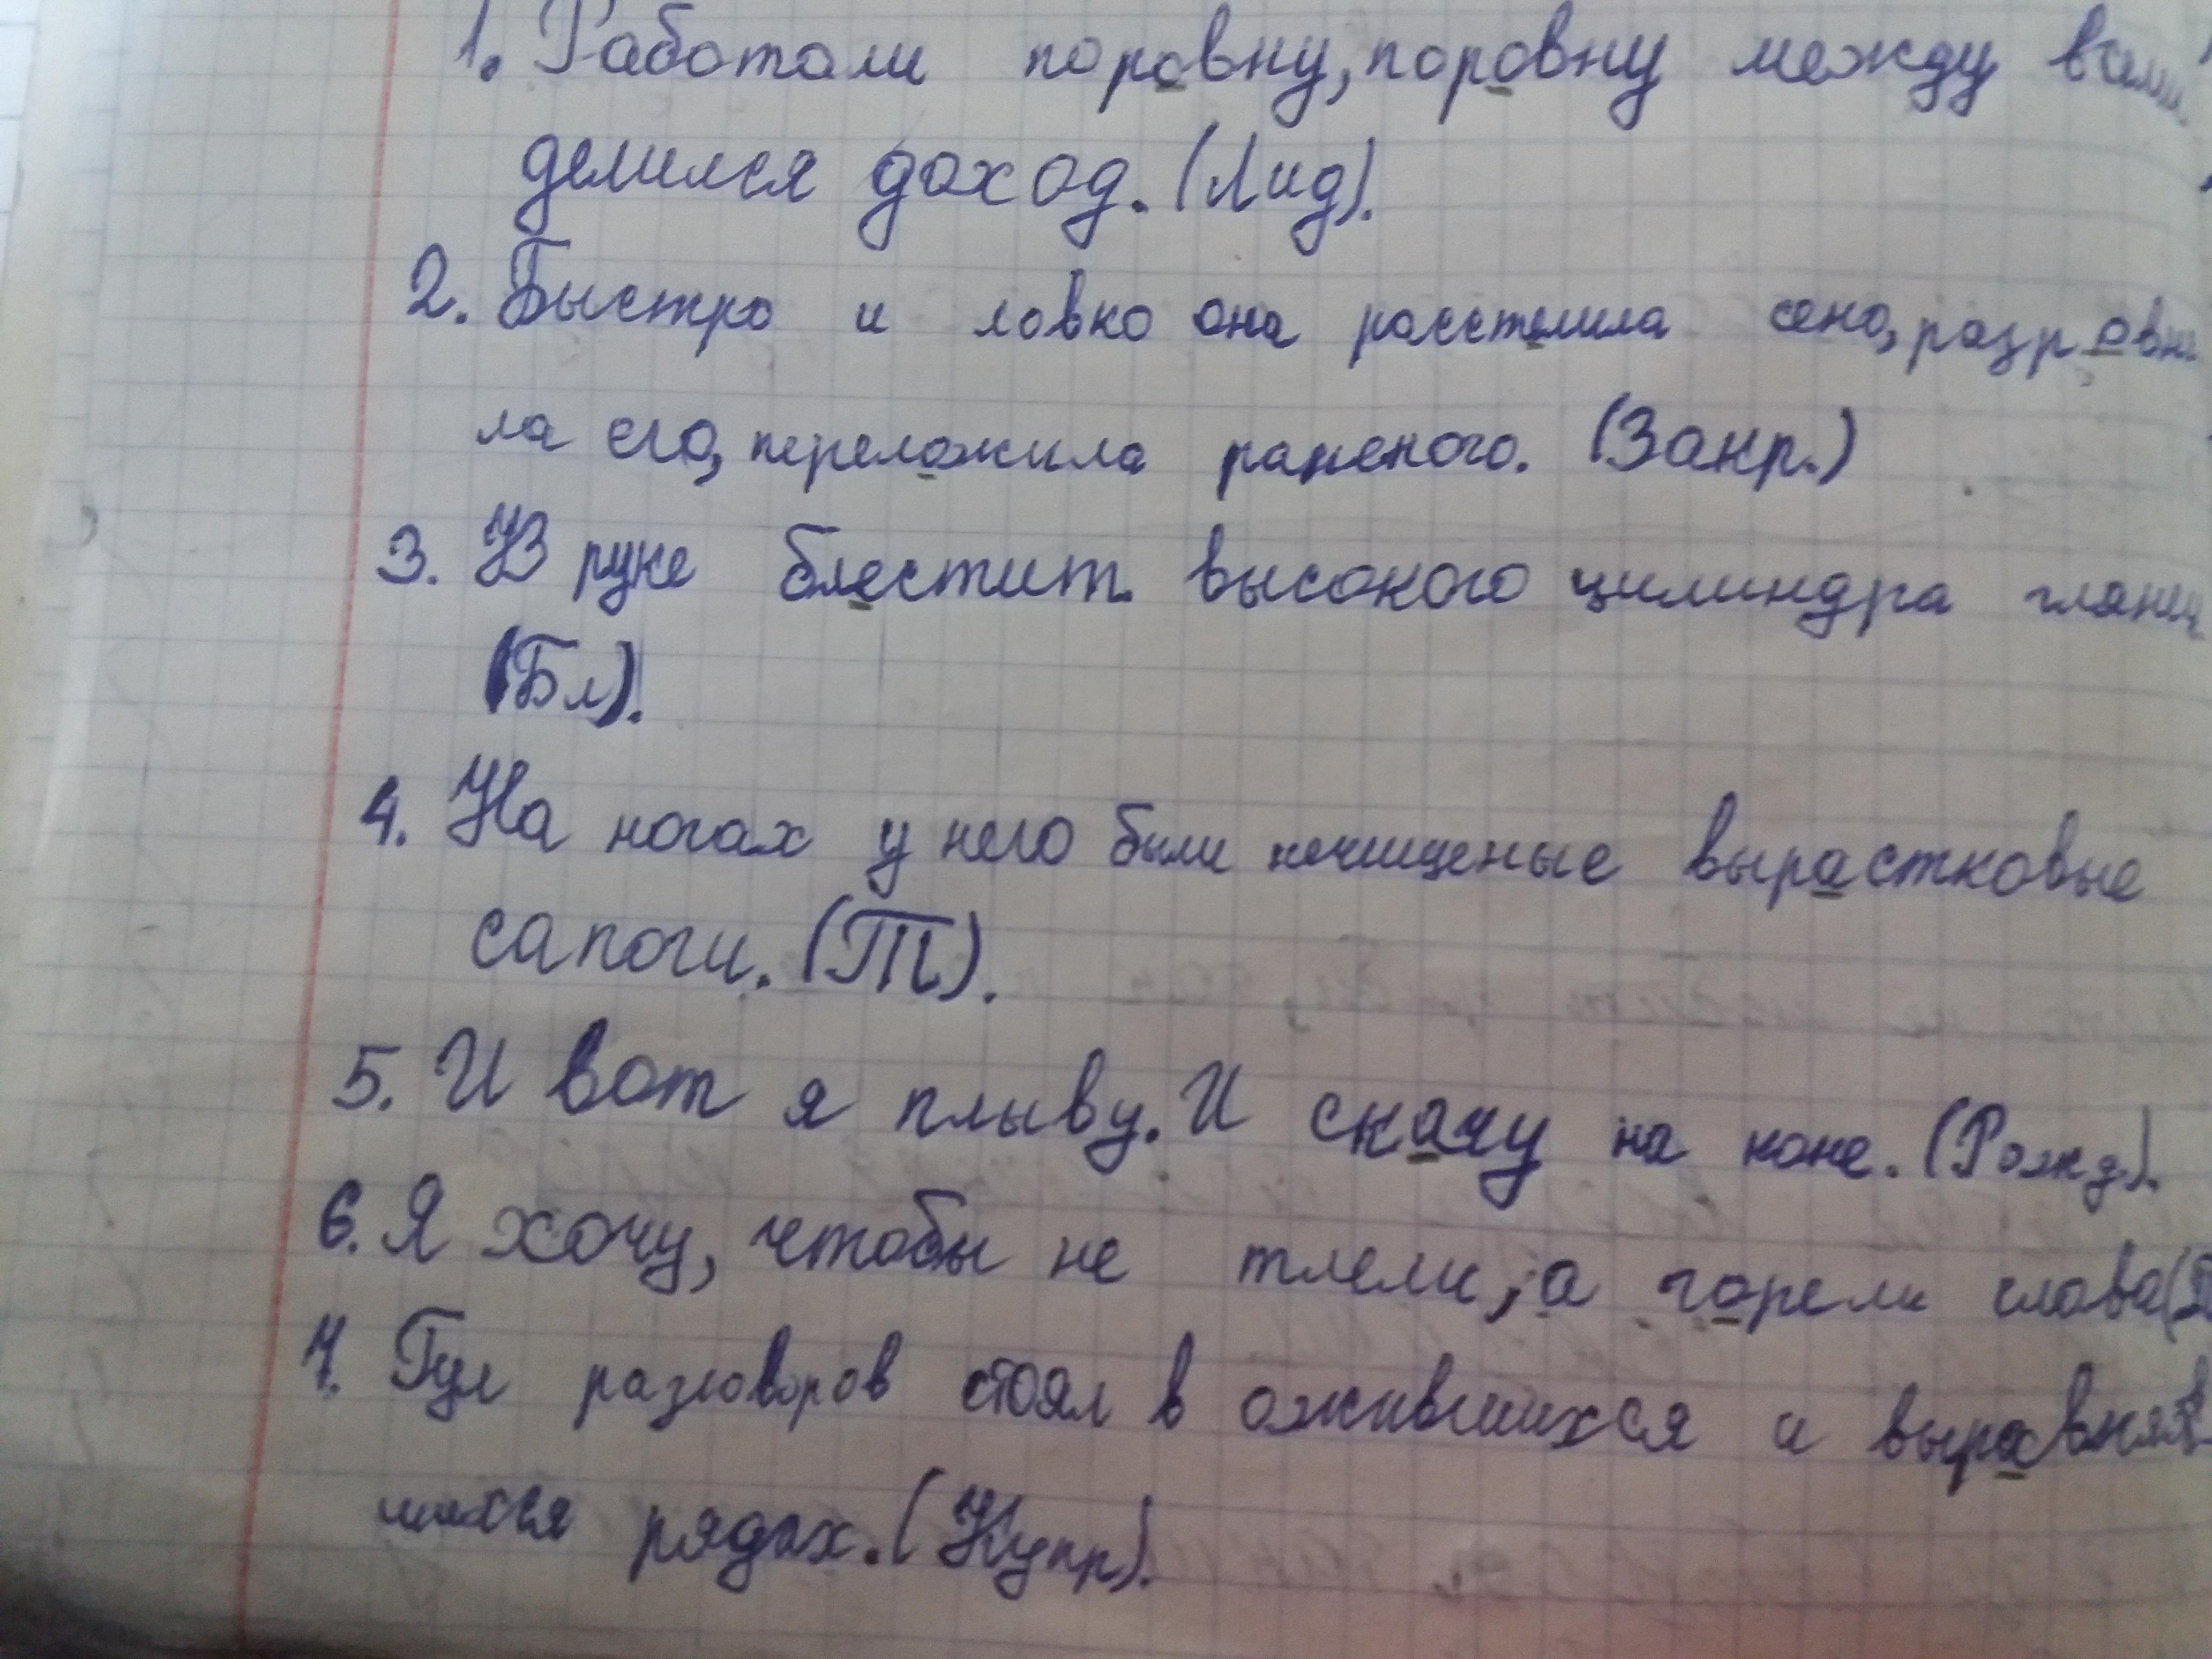 1. Работали поровну, поровну между всеми
делился доход. (Лид).
2. Быстро и ловко она расстелила сено, разровня
ла его, переложила раненого. (Закр.)
3. В руке блестит высокого цилиндра глянец
(Бл).
4. На ногах у него были нечищеные вырастковые
сапоги. (Т).
5. И вот я плыву. И скачу на коне. (Рожд).
6. Я хочу, чтобы не тлели, а горели слова
7. Гул разговоров стоял в оживившихся и выравняв
шихся рядах. (Купр).